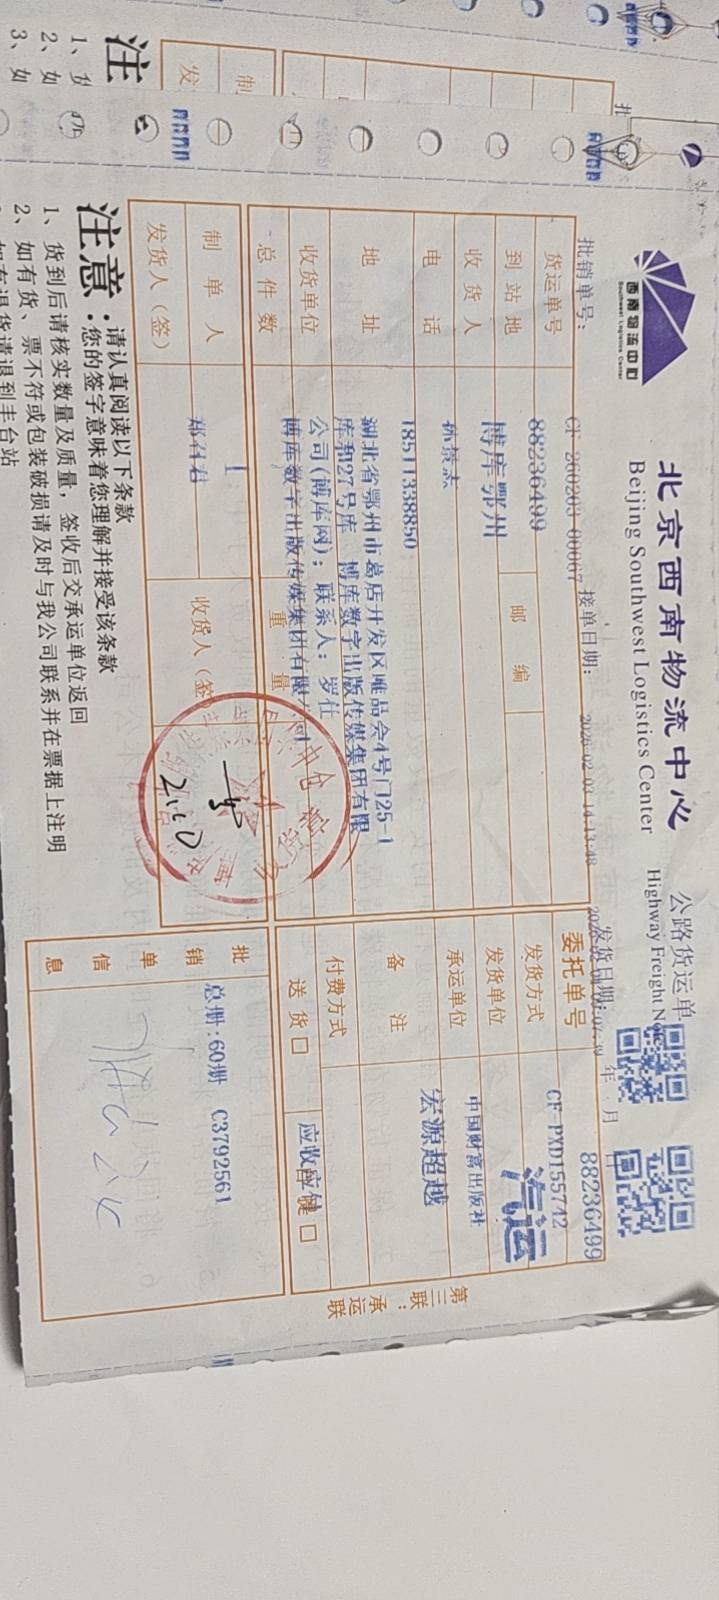 西南物流中心
Southwest Logistics Center
北京西南物流中心
Beijing Southwest Logistics Center
公路货运单
Highway Freight Note
批销单号: CF-260203-00067 接单日期: 2026-02-03 14:13:48 发货日期: 年 月 日
货运单号 88236499
委托单号 88236499
到站地 博库鄂州 邮编
发货方式 CF-PXD155742 汽运
收货人
发货单位 中国财富出版社
电话 18511338850
承运单位 宏源超越
地址 湖北省鄂州市葛店开发区唯品会4号门25-1
库和27号库 博库数字出版传媒集团有限
公司(博库网); 联系人: 罗仕
备注
收货单位 博库数字出版传媒集团有限公司
付费方式
总件数 1 重量
送货 □ 应收应付 □
制单人 郑召君 收货人(签)
发货人(签)
批销单信息 总册:60册 C3792561
第三联:承运联
注意:
请认真阅读以下条款
您的签字意味着您理解并接受该条款
1、货到后请核实数量及质量,签收后交承运单位返回
2、如有货、票不符或包装破损请及时与我公司联系并在票据上注明
注
1、
2、如
3、如
制
发